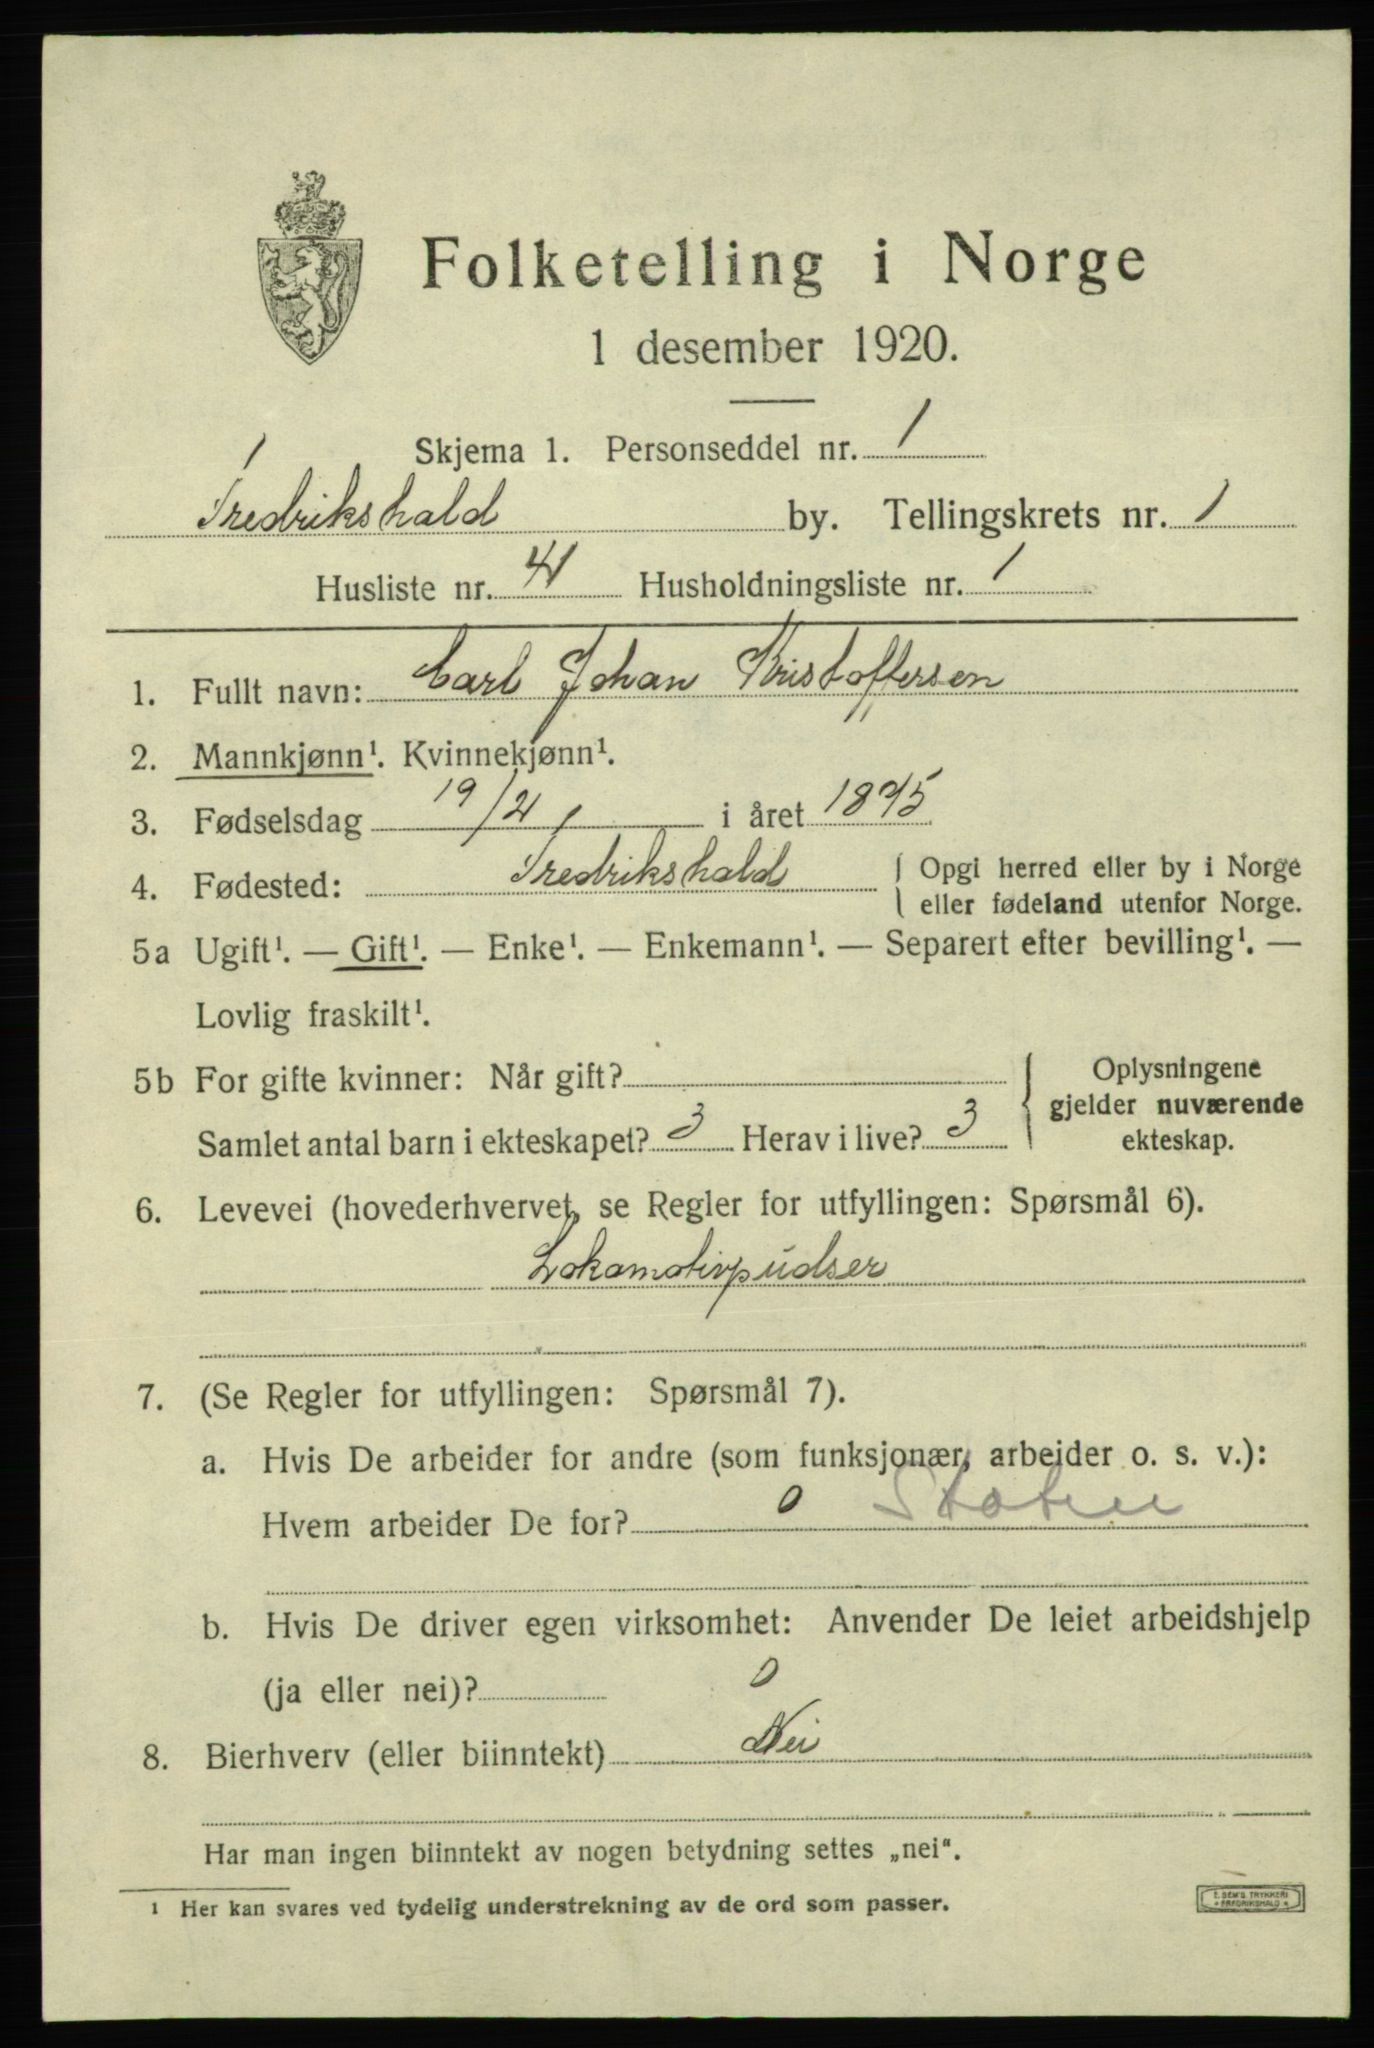 Folketelling i Norge
1 desember 1920.
Skjema 1. Personseddel nr. 1
Fredrikshald by. Tellingskrets nr. 1
Husliste nr. 41 Husholdningsliste nr. 1
1. Fullt navn: Carl Johan Kristoffersen
2. Mannkjønn¹. Kvinnekjønn¹.
3. Fødselsdag 19/2 i året 1895
4. Fødested: Fredrikshald { Opgi herred eller by i Norge
eller fødeland utenfor Norge.
5a Ugift¹. — Gift¹. — Enke¹. — Enkemann¹. — Separert efter bevilling¹. —
Lovlig fraskilt¹.
5b For gifte kvinner: Når gift? { Oplysningene
gjelder nuværende
Samlet antal barn i ekteskapet? 3 Herav i live? 3 ekteskap.
6. Levevei (hovederhvervet, se Regler for utfyllingen: Spørsmål 6).
Lokomotivpudser
7. (Se Regler for utfyllingen: Spørsmål 7).
a. Hvis De arbeider for andre (som funksjonær, arbeider o. s. v.):
Hvem arbeider De for? 0 Staten
b. Hvis De driver egen virksomhet: Anvender De leiet arbeidshjelp
(ja eller nei)? 0
8. Bierhverv (eller biinntekt) Nei
Har man ingen biinntekt av nogen betydning settes „nei“.
¹ Her kan svares ved tydelig understrekning av de ord som passer.
E. SEM'S TRYKKERI
FREDRIKSHALD